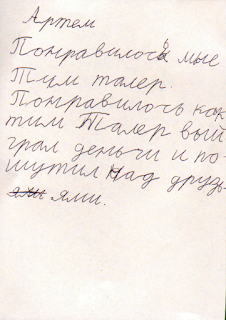 Артем
Понравилось мые
Тим талер.
Понравилось как
тим Талер вый
грал деньги и по-
шутил над друзь-
ями.